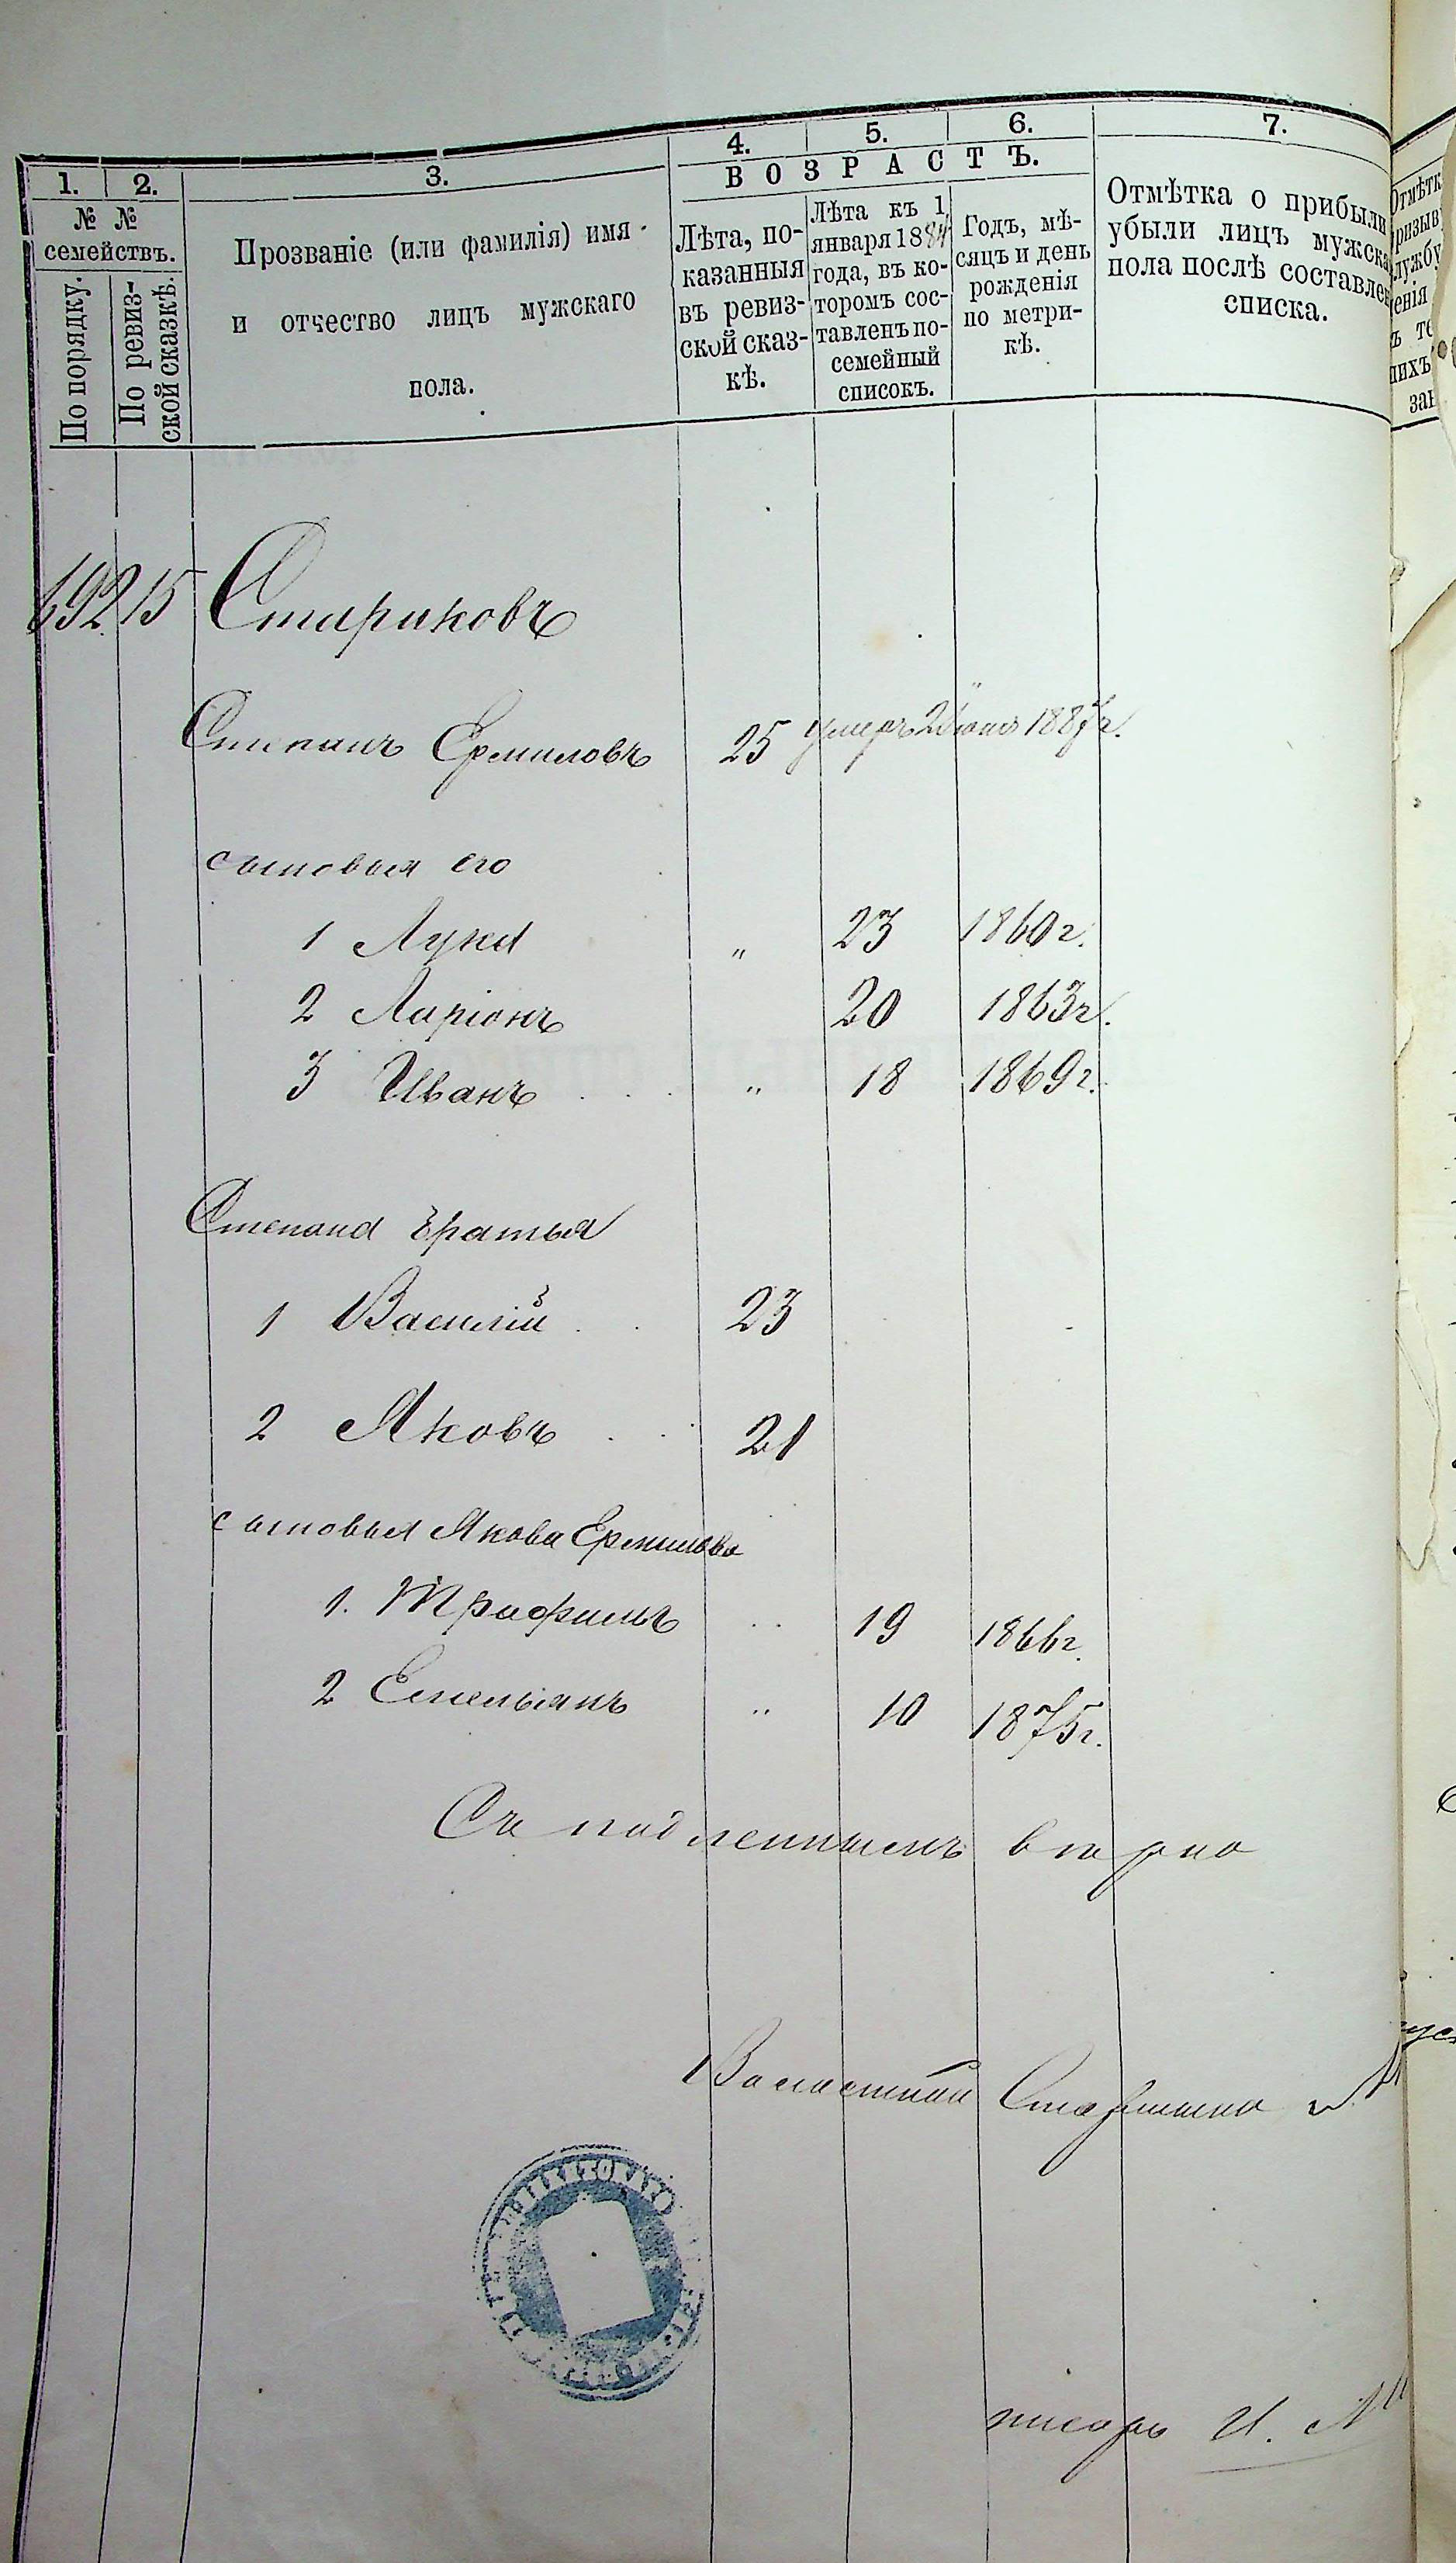 1. 2. 3. 4. 5. 6. 7.
ВОЗРАСТЪ.
№ №
семействъ.
По порядку.
По ревиз-
ской сказкѣ.
Прозваніе (или фамилія) имя
и отчество лицъ мужскаго
пола.
Лѣта, по-
казанныя
въ ревиз-
ской сказ-
кѣ.
Лѣта къ 1
января 1884
года, въ ко-
торомъ сос-
тавленъ по-
семейный
списокъ.
Годъ, мѣ-
сяцъ и день
рожденія
по метри-
кѣ.
Отмѣтка о прибыли
убыли лицъ мужска
пола послѣ составле
списка.
692 15 Стариковъ
Степанъ Ермиловъ 25 умеръ 2 іюня 1887г.
сыновья его
1 Лука " 23 1860г.
2 Ларіонъ 20 1863г.
3 Иванъ . . . " 18 1869г.
Степана братья
1 Василій . . 23
2 Яковъ . . 21
сыновья Якова Ермилова
1. Трафимъ " 19 1866г.
2 Емельянъ " 10 1875г.
Съ подленнымъ вѣрно
Волостной Старшина
писарь И.